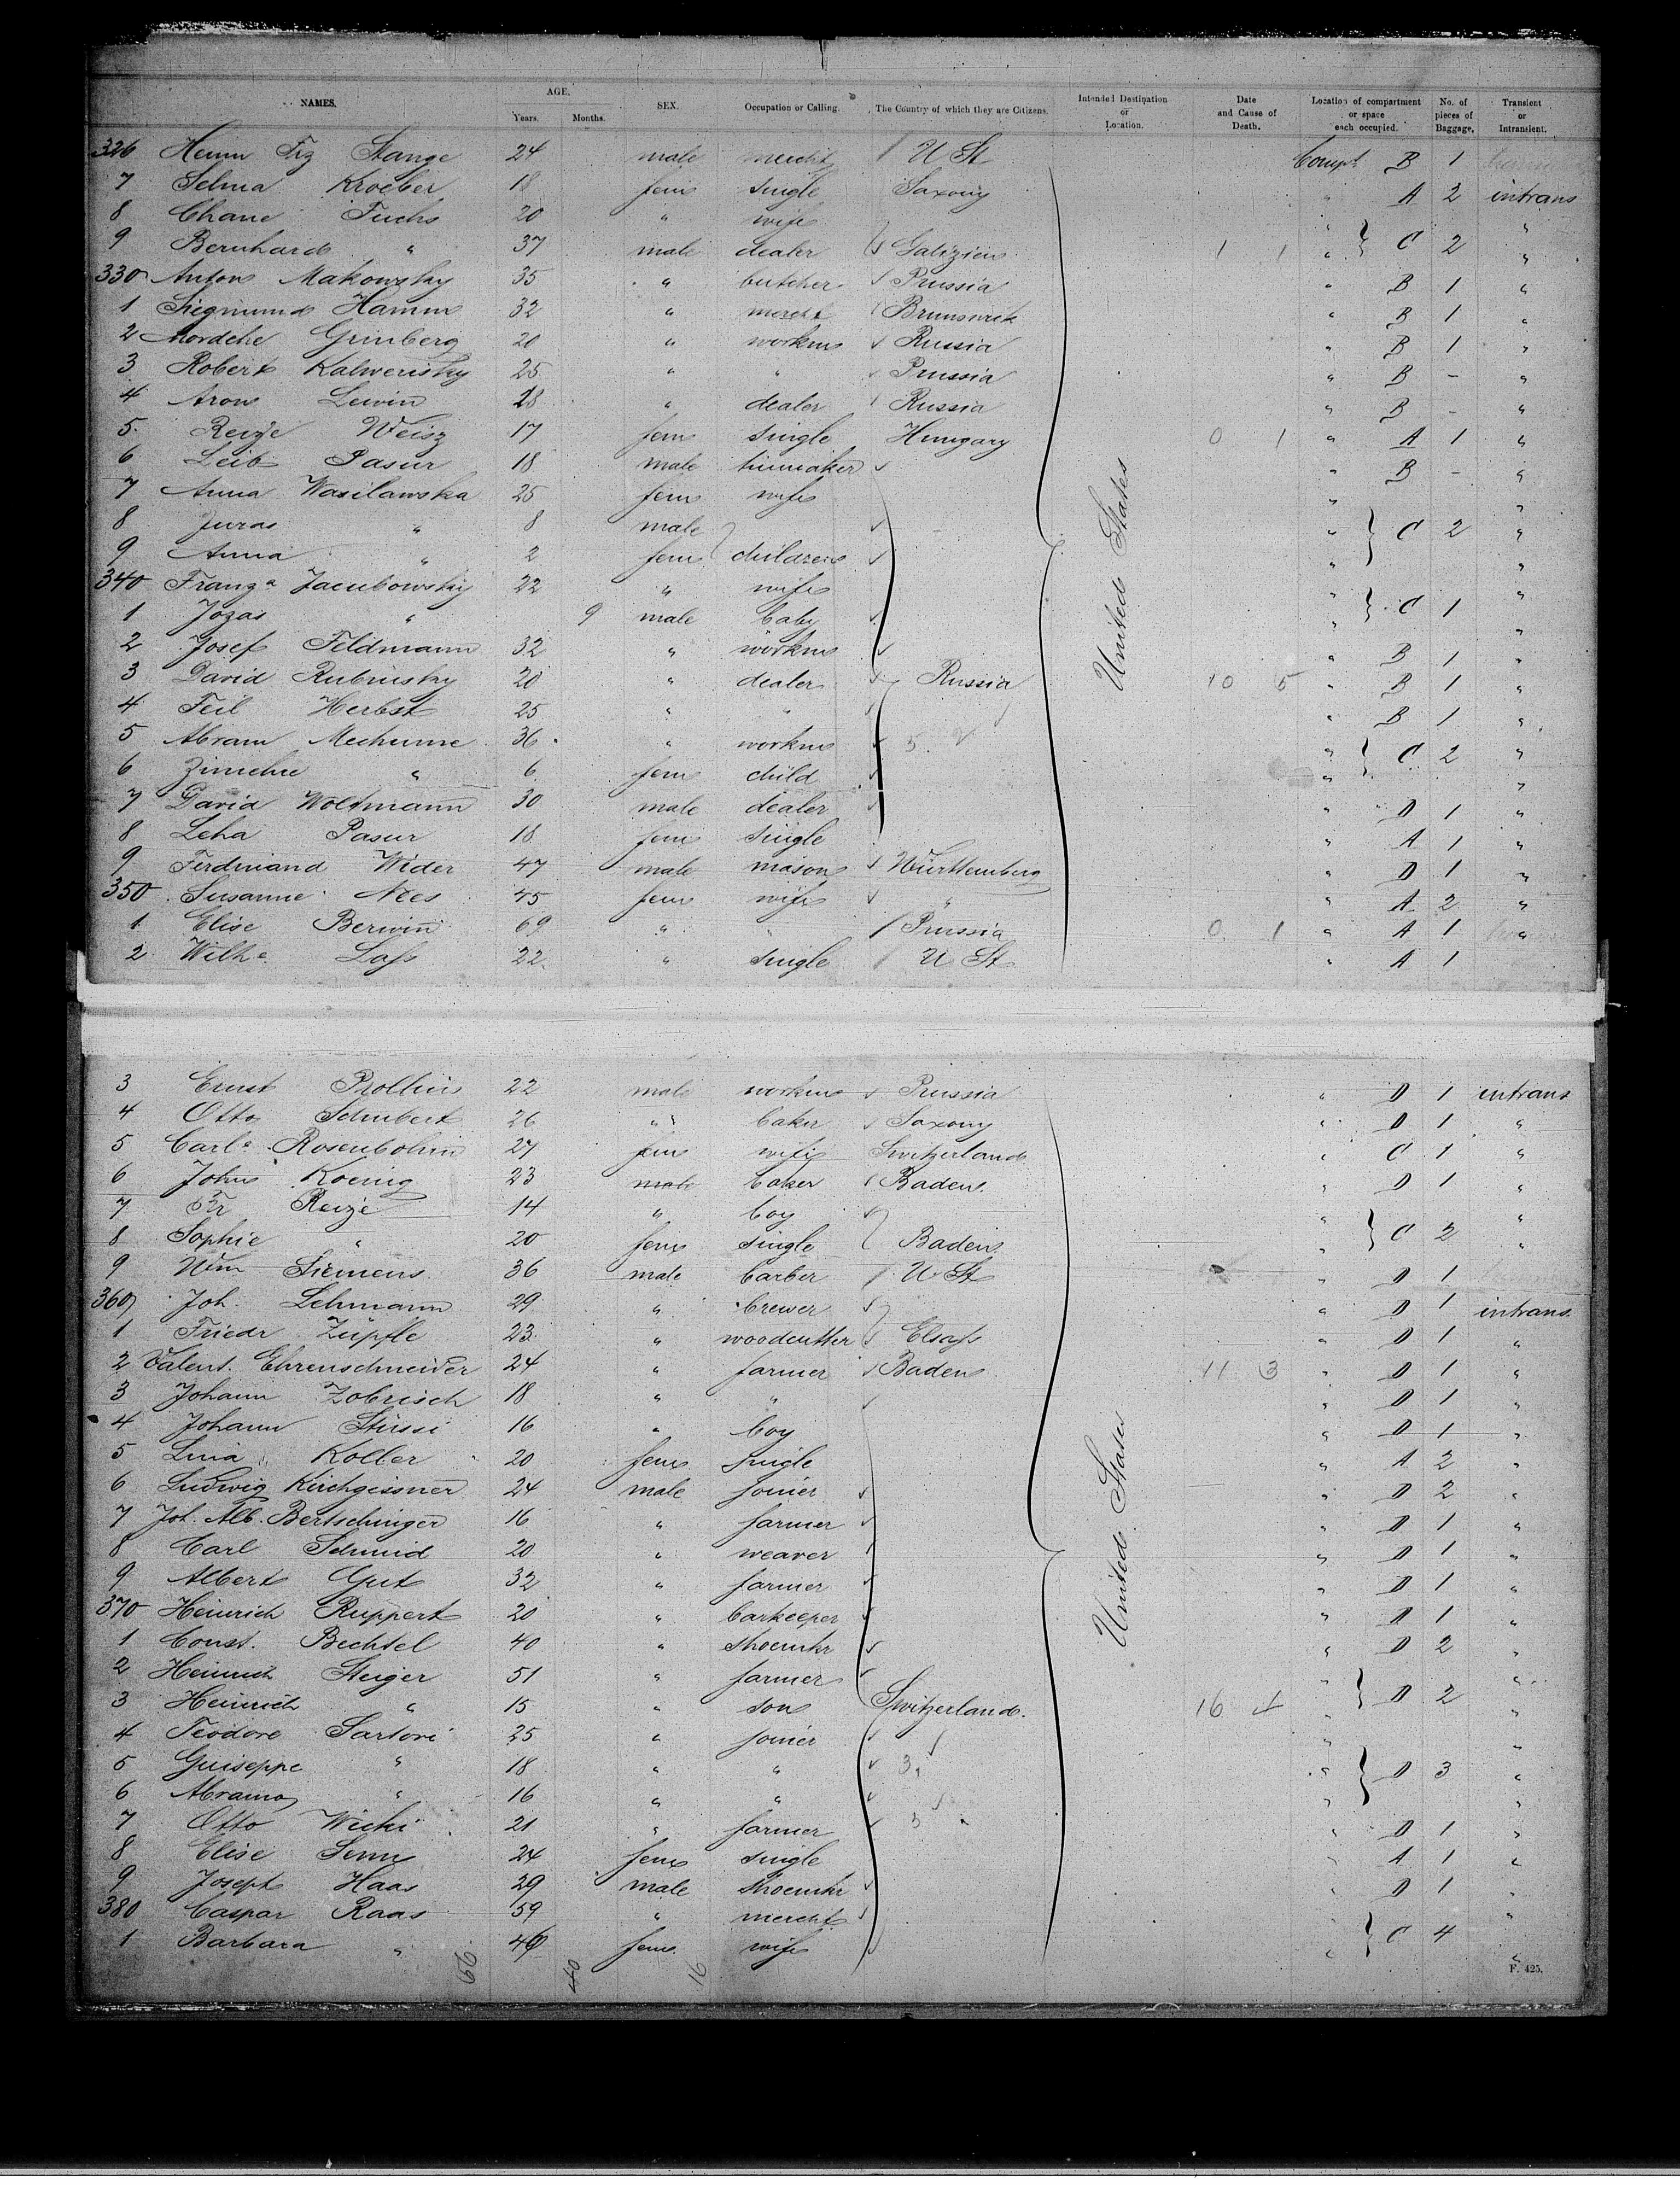 NAMES. AGE. Years. Months. SEX. Occupation or Calling. The Country of which they are Citizens. Intended Destination or Location. Date and Cause of Death. Location of compartment or space each occupied. No. of pieces of Baggage. Transient or Intransient.
326 Stange 24 male mercht / U St Compt B 1
7 Selma Kroeber 18 fem single Saxony " A 2 intrans
8 Chane Fuchs 20 " wife " "
9 Bernhard " 37 male dealer Galizien 1 1 " } C 2 "
330 Anton Makowsky 35 " butcher Prussia " B 1 "
1 Siegmund Hamm 32 " mercht Brunswick " B 1 "
2 Mordche Grinberg 20 " workm Russia " B 1 "
3 Robert 25 " " Prussia " B - "
4 Aron Lewin 28 " dealer Russia " B - "
5 Reize Weisz 17 fem single Hungary 0 1 " A 1 "
6 Leib Pasur 18 male " B - "
7 Anna Wasilawska 25 fem wife " "
8 Juras " 8 male " } C 2 "
9 Anna " 2 fem } children " "
340 Franz a Jacubowsky 22 " wife " "
1 Jozas " 9 male baby " } C 1 "
2 Josef Feldmann 32 " workm " B 1 "
3 David Rubinsky 20 " dealer Russia United States 10 5 " B 1 "
4 Feil Herbst 25 " " " B 1 "
5 Abram 36 " workm " } C 2 "
6 " 6 fem child " "
7 David Woltmann 30 male dealer " D 1 "
8 Leha Pasur 18 fem single " A 1 "
9 Ferdinand Wider 47 male mason Württemberg " D 1 "
350 Susanne Nees 45 fem wife " " A 2 "
1 Elise Berwin 69 " " / Prussia 0 1 " A 1 "
2 Wilh e Lass 22 " single / U St " A 1
3 Ernst 22 male workm Prussia " D 1 intrans
4 Otto Schubert 26 " baker Saxony " D 1 "
5 Carl e Rosenbohm 27 fem wife Switzerland " C 1 "
6 John Koenig 23 male baker Baden " D 1 "
7 Fr Reize 14 " boy " "
8 Sophie " 20 fem single Baden " } C 2 "
9 Wm Siemens 36 male barber / U St " D 1
360 Joh. Lehmann 29 " brewer " D 1 intrans
1 Friedr Züpfle 23 " woodcutter Elsass " D 1 "
2 Valent. Ehrenschneider 24 " farmer Baden 11 3 " D 1 "
3 Johann Zobrisch 18 " " " D 1 "
4 Johann Stüssi 16 " boy " D 1 "
5 Lina Koller 20 fem single " A 2 "
6 Ludwig Kirchgissner 24 male joiner " D 2 "
7 Joh. Alb. Bertschinger 16 " farmer " D 1 "
8 Carl Schmid 20 " weaver " D 1 "
9 Albert Gut 32 " farmer " D 1 "
370 Heinrich Ruppert 20 " barkeeper United States " D 1 "
1 Const. Bechtel 40 " shoemkr " D 2 "
2 Heinrich Steiger 51 " farmer " "
3 Heinrich " 15 " son Switzerland. 16 4 " } D 2 "
4 Teodore Sartori 25 " joiner " "
5 Guiseppe " 18 " " " } D 3 "
6 Abramo " 16 " " " "
7 Otto Wicki 21 " farmer " D 1 "
8 Elise Senn 24 fem single " A 1 "
9 Joseph Haas 29 male shoemkr " D 1 "
380 Caspar Raas 59 " mercht "
1 Barbara " 46 fem wife " } C 4 "
40 16
F. 425.